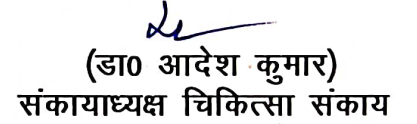 (डा0 आदेश कुमार)
संकायाध्यक्ष चिकित्सा संकाय